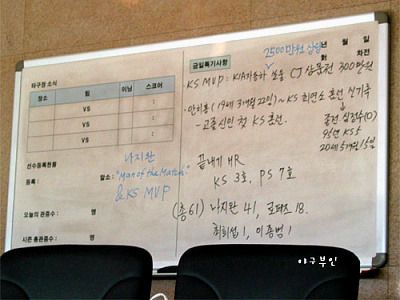 타구장 소식
장소 팀 이닝 스코어
VS :
VS :
VS :
선수등록현황
등록 : 말소 :
나지완
"Man of the Match"
& KS MVP
오늘의 관중수 : 명
시즌 총관중수 : 명
금일특기사항
년 월 일
차전
2500만원 상당
KS MVP : KIA자동차 쏘울 CJ 상품권 300만원
· 안치홍 (19세 3개월 22일) ~ KS 최연소 홈런 신기록
- 고졸신인 첫 KS 홈런.
종전 김재현(LG)
95년 KS5
20세 5개월 15일
끝내기 HR
KS 3호. PS 7호
(총61) 나지완 41, 로페즈 18.
최희섭 1, 이종범 1
야구부인